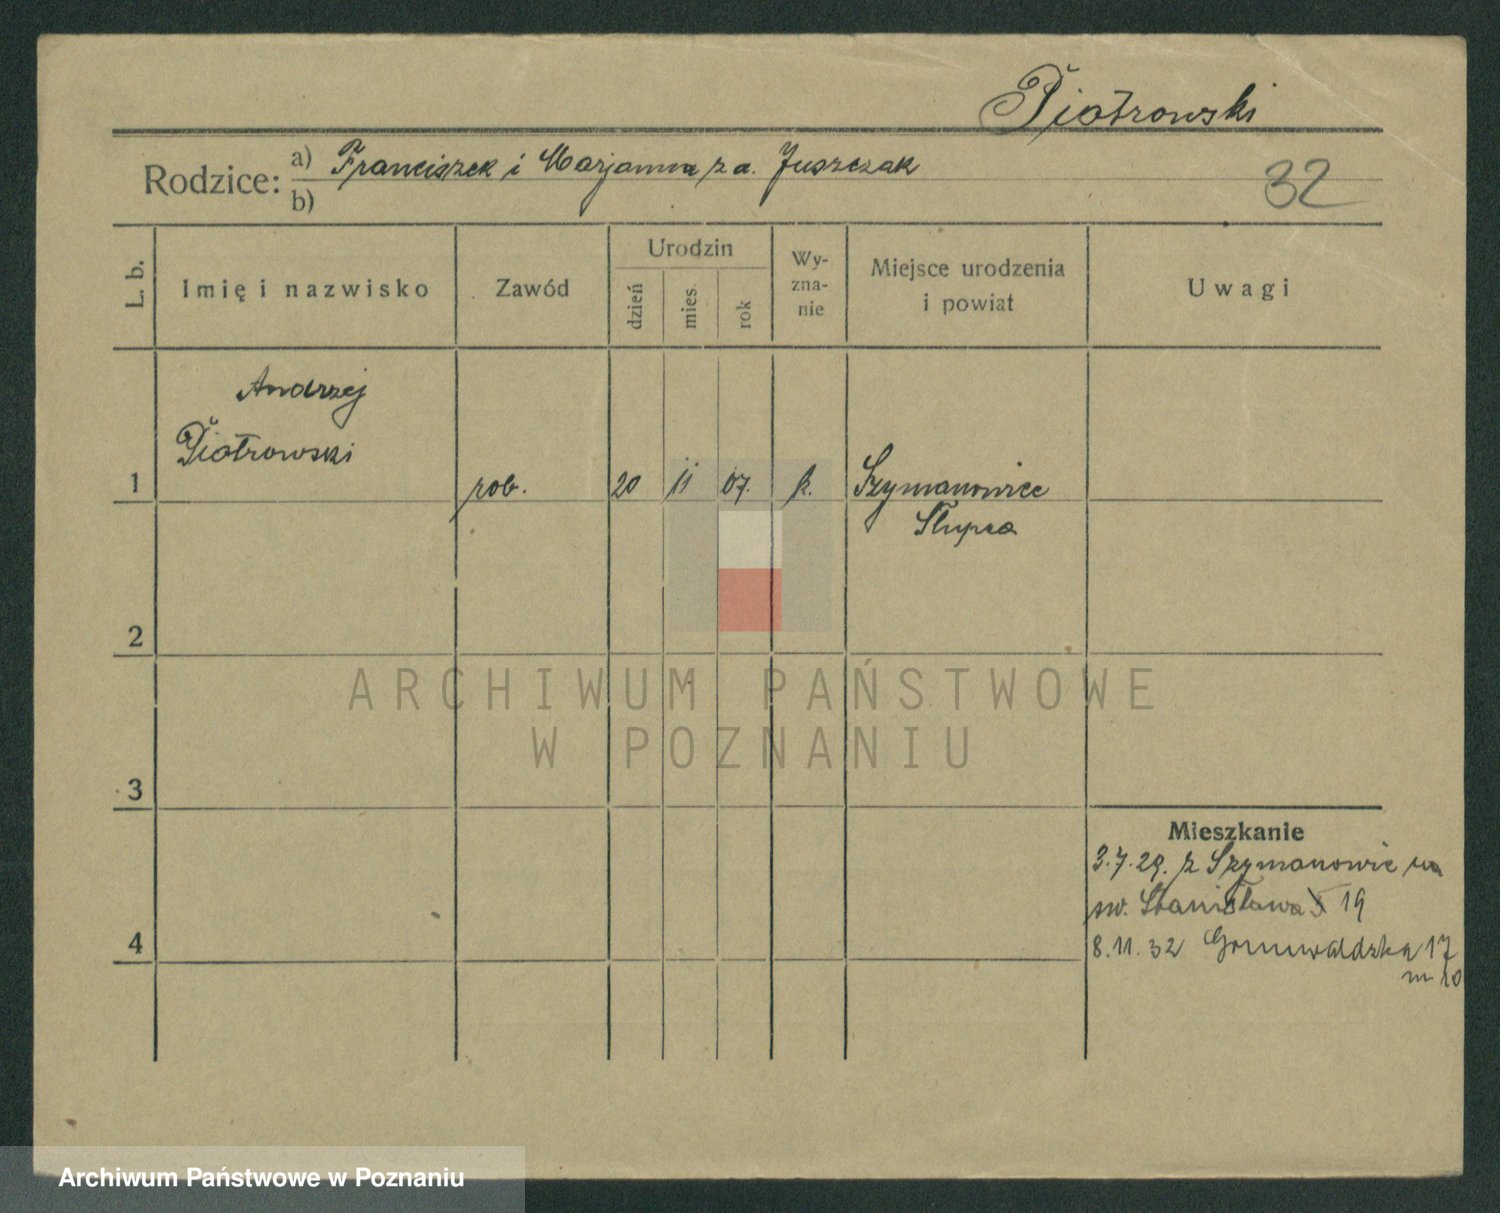 Piotrowski
Rodzice: a) Franciszek i Marjanna z d. Juszczak
b)
32
L. b.
Imię i nazwisko
Zawód
Urodzin
dzień
mies.
rok
Wy-
zna-
nie
Miejsce urodzenia
i powiat
Uwagi
Andrzej
Piotrowski
1 rob. 20 11 07. k. Szymanowice
Słupca
2
ARCHIWUM PAŃSTWOWE
W POZNANIU
3
Mieszkanie
3.7.29. z Szymanowic
św. Stanisława 19
4
8.11.32 Grunwaldzka 17
m 10
Archiwum Państwowe w Poznaniu